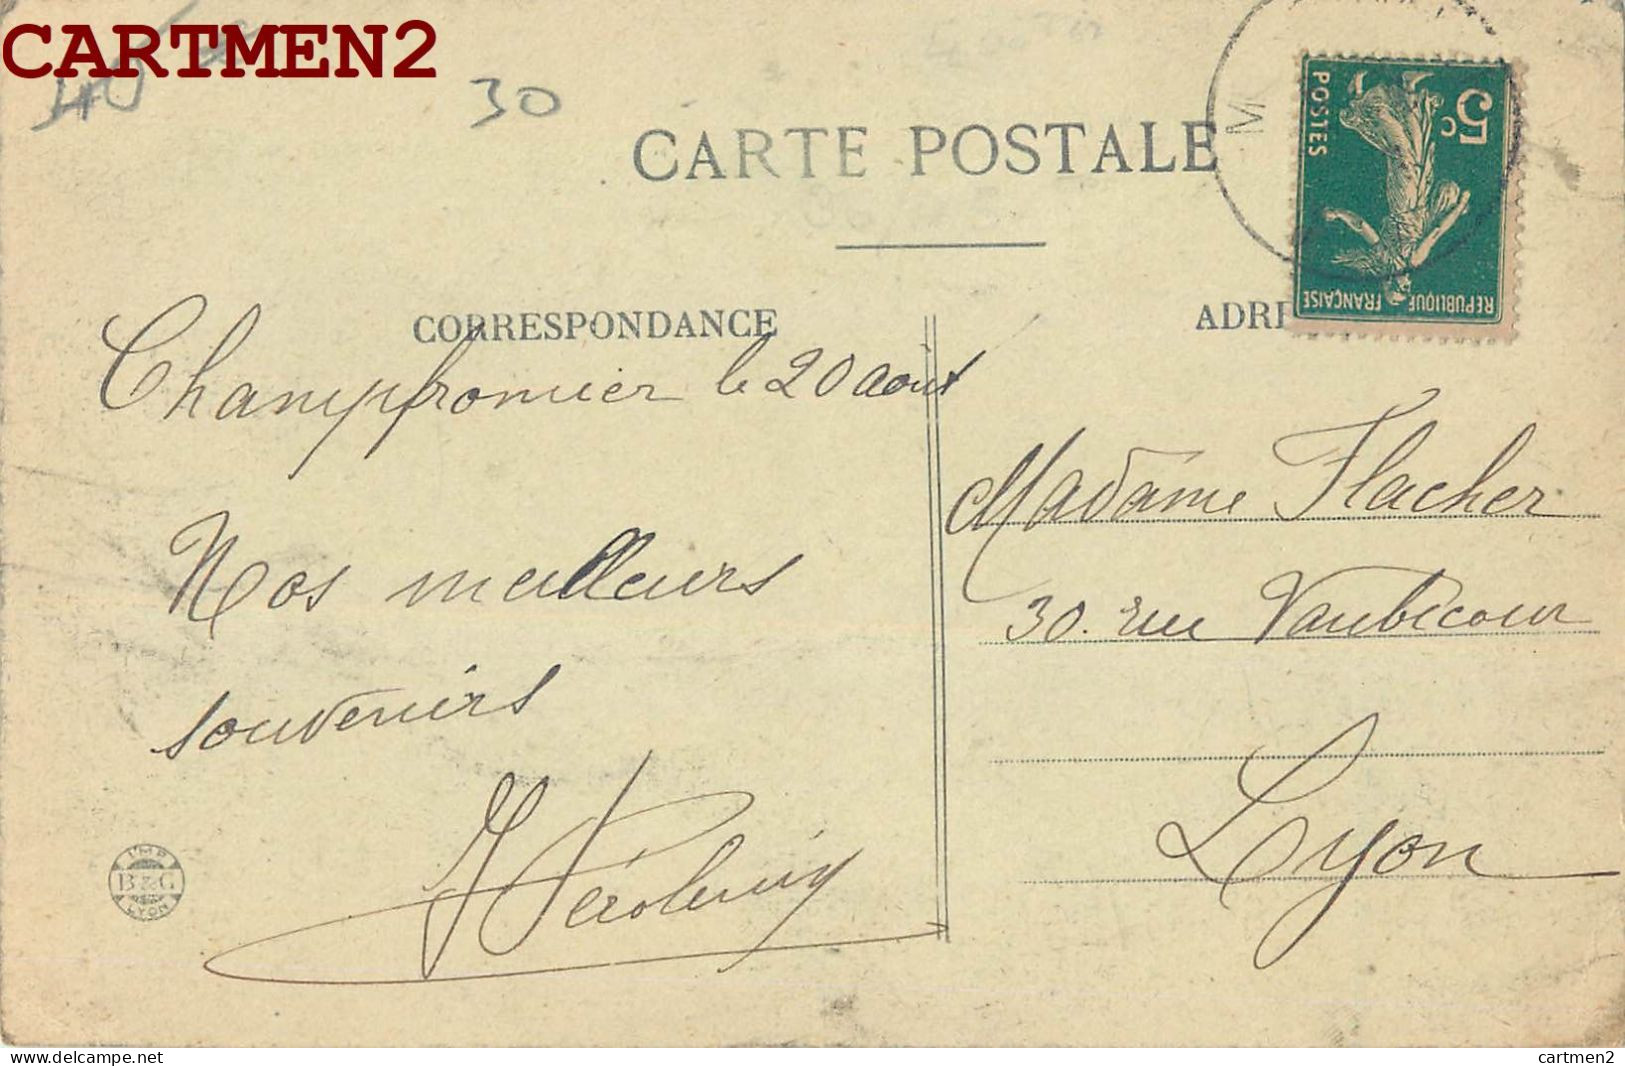 CARTMEN2
30
CARTE POSTALE
M
5c
POSTES
REPUBLIQUE FRANÇAISE
CORRESPONDANCE
ADRE
Champfromier le 20 août
Nos meilleurs
souvenirs
Madame Flacher
30. rue Vaubecour
Lyon
IMP
B & G
LYON
delcampe.net
cartmen2